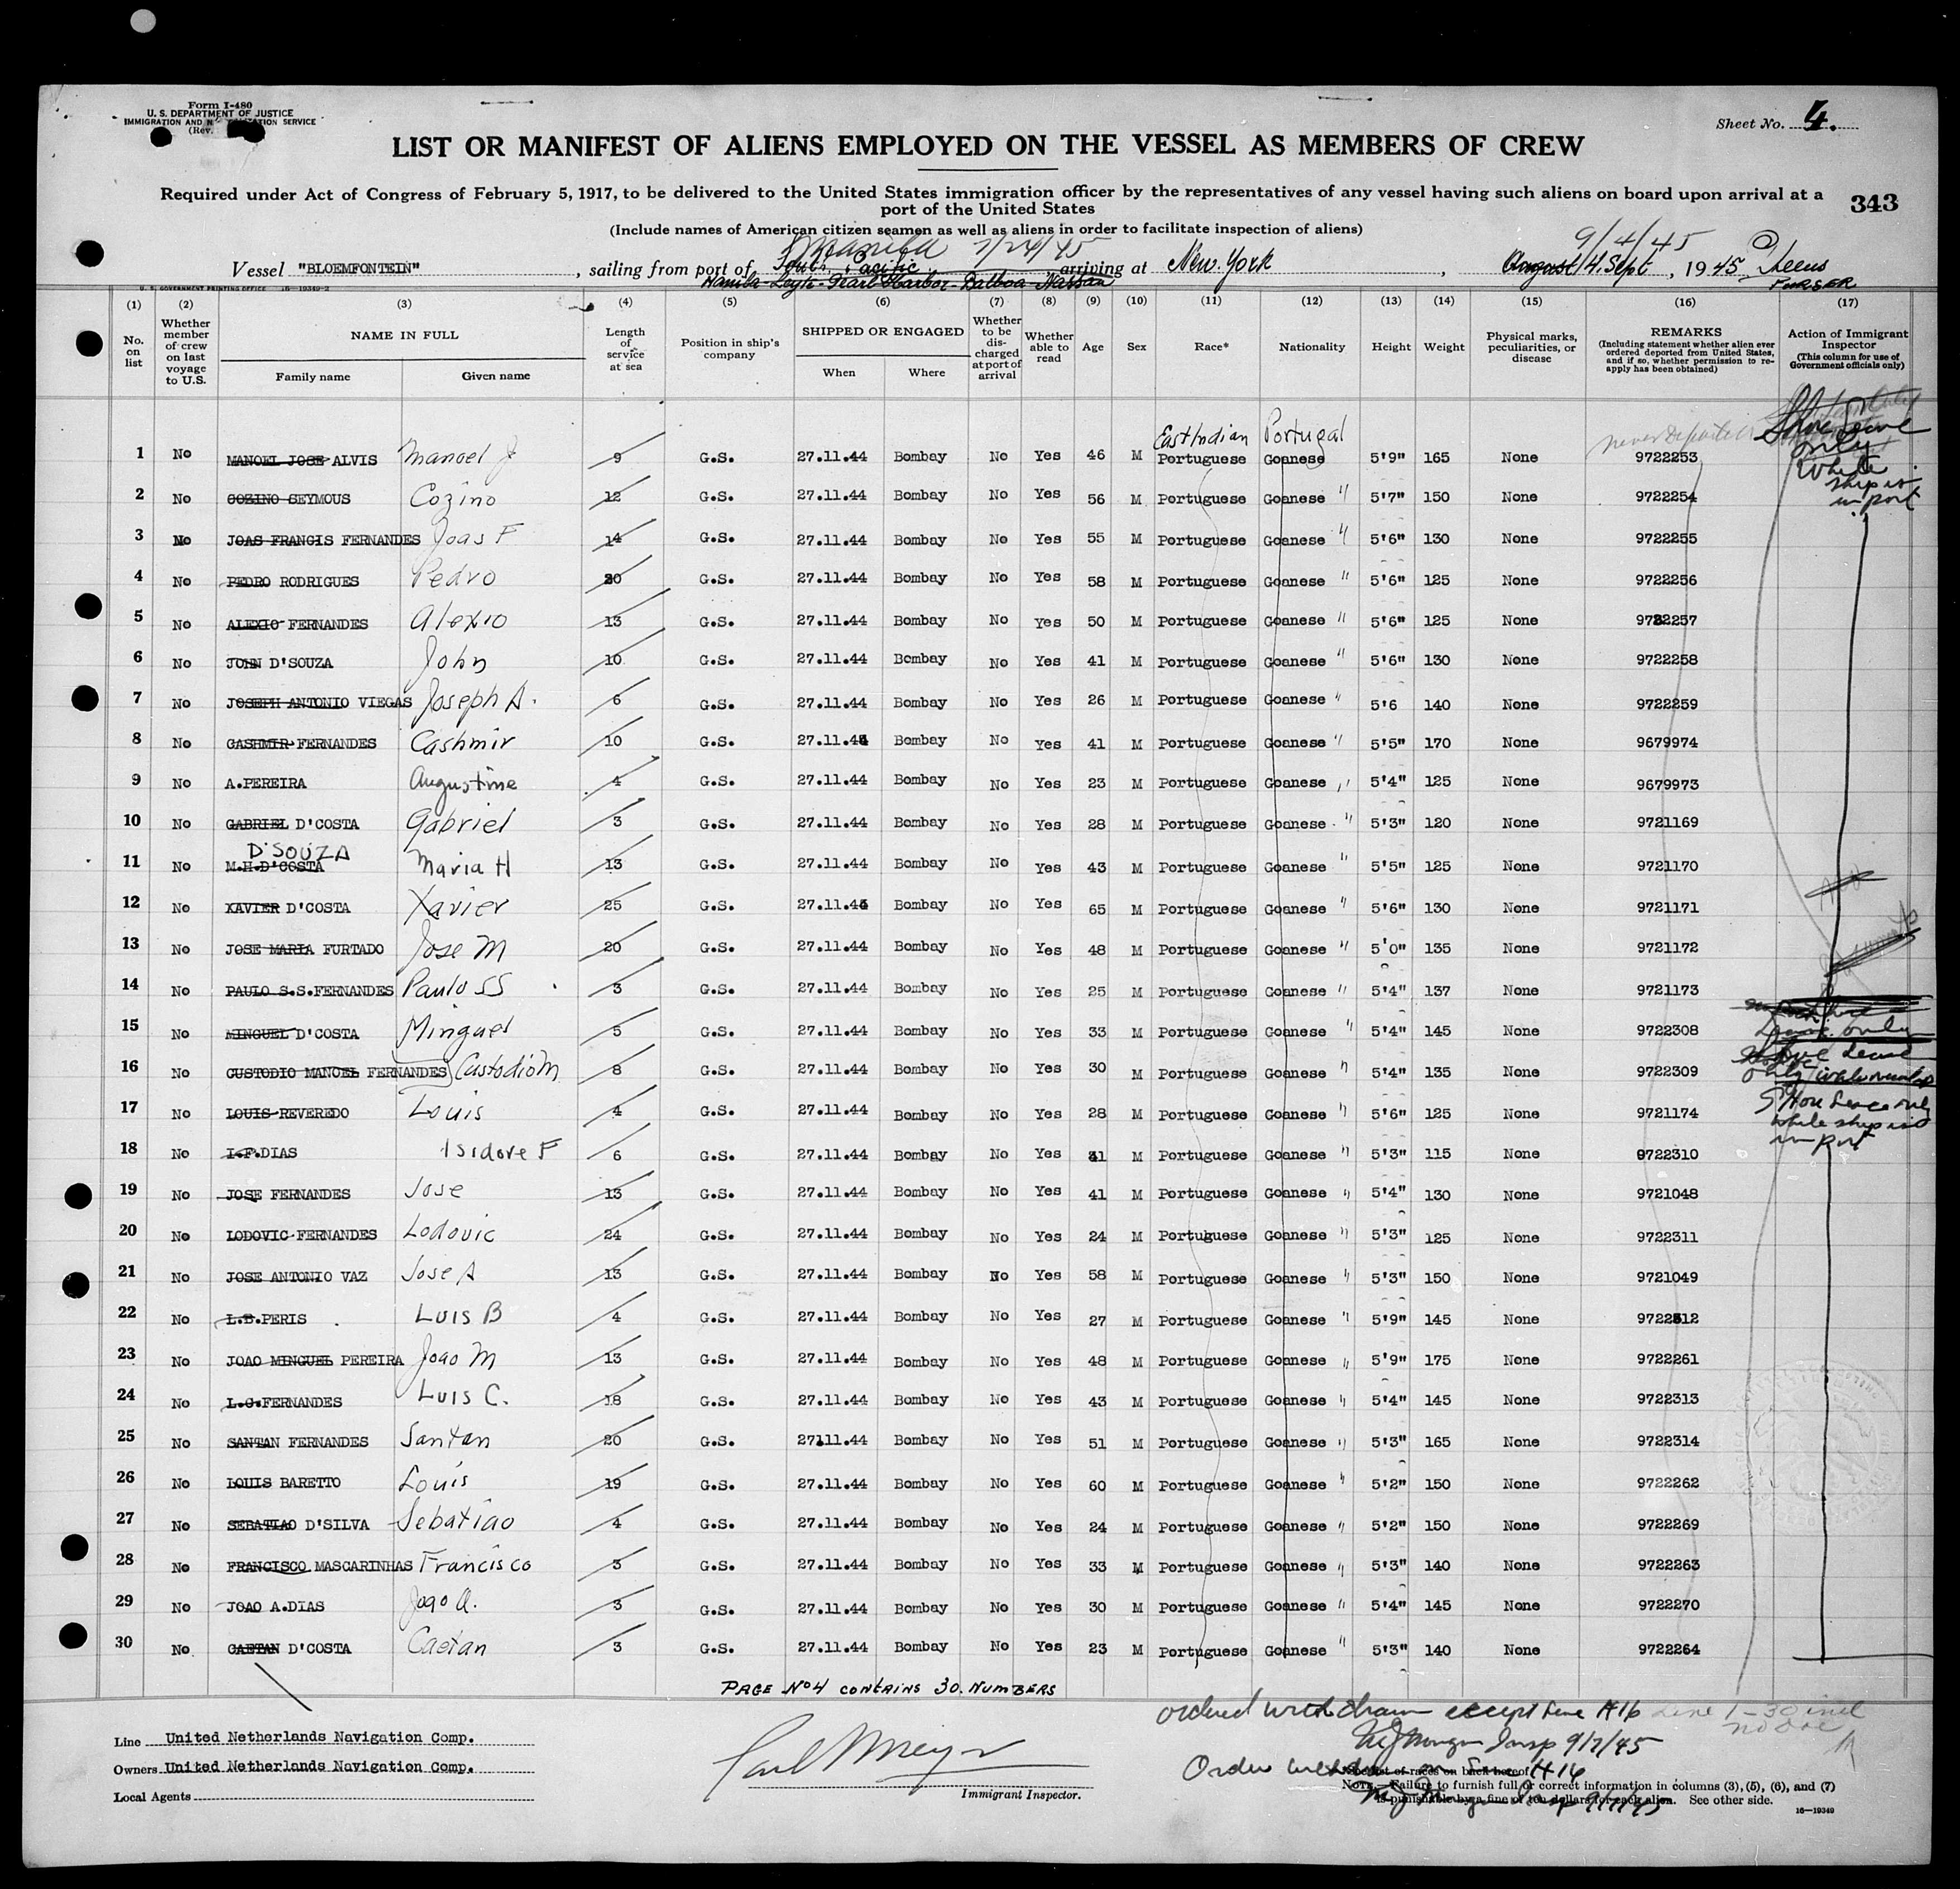 Form I-480
U. S. DEPARTMENT OF JUSTICE
IMMIGRATION AND SERVICE
(Rev.
Sheet No. 4.
LIST OR MANIFEST OF ALIENS EMPLOYED ON THE VESSEL AS MEMBERS OF CREW
Required under Act of Congress of February 5, 1917, to be delivered to the United States immigration officer by the representatives of any vessel having such aliens on board upon arrival at a
port of the United States
343
(Include names of American citizen seamen as well as aliens in order to facilitate inspection of aliens)
Manila 7/24/45
9/4/45
Vessel "BLOEMFONTEIN", sailing from port of South Pacific arriving at New York, August 4 Sept, 1945
Manila-Leyte-Pearl Harbor-Balboa-Nassau
PURSER
U. S. GOVERNMENT PRINTING OFFICE 16-19349-2
(1) (2) (3) (4) (5) (6) (7) (8) (9) (10) (11) (12) (13) (14) (15) (16) (17)
No. on list
Whether member of crew on last voyage to U.S.
NAME IN FULL
Family name
Given name
Length of service at sea
Position in ship's company
SHIPPED OR ENGAGED
When
Where
Whether to be discharged at port of arrival
Whether able to read
Age
Sex
Race*
Nationality
Height
Weight
Physical marks, peculiarities, or disease
REMARKS
(Including statement whether alien ever ordered deported from United States, and if so, whether permission to reapply has been obtained)
Action of Immigrant Inspector
(This column for use of Government officials only)
East Indian Portugal
never Deported
Shore Leave
only
While
ship is
in port
1 No MANOEL JOSE ALVIS Manoel J 9 G.S. 27.11.44 Bombay No Yes 46 M Portuguese Goanese 5'9" 165 None 9722253
2 No COZINO SEYMOUS Cozino 12 G.S. 27.11.44 Bombay No Yes 56 M Portuguese Goanese " 5'7" 150 None 9722254
3 No JOAS FRANCIS FERNANDES Joas F 14 G.S. 27.11.44 Bombay No Yes 55 M Portuguese Goanese " 5'6" 130 None 9722255
4 No PEDRO RODRIGUES Pedro 20 G.S. 27.11.44 Bombay No Yes 58 M Portuguese Goanese " 5'6" 125 None 9722256
5 No ALEXIO FERNANDES Alexio 13 G.S. 27.11.44 Bombay No Yes 50 M Portuguese Goanese " 5'6" 125 None 9722257
6 No JOHN D'SOUZA John 10 G.S. 27.11.44 Bombay No Yes 41 M Portuguese Goanese " 5'6" 130 None 9722258
7 No JOSEPH ANTONIO VIEGAS Joseph A. 6 G.S. 27.11.44 Bombay No Yes 26 M Portuguese Goanese " 5'6 140 None 9722259
8 No CASHMIR FERNANDES Cashmir 10 G.S. 27.11.44 Bombay No Yes 41 M Portuguese Goanese " 5'5" 170 None 9679974
9 No A.PEREIRA Augustine 4 G.S. 27.11.44 Bombay No Yes 23 M Portuguese Goanese " 5'4" 125 None 9679973
10 No GABRIEL D'COSTA Gabriel 3 G.S. 27.11.44 Bombay No Yes 28 M Portuguese Goanese " 5'3" 120 None 9721169
D'SOUZA
11 No M.H.D'COSTA Maria H 13 G.S. 27.11.44 Bombay No Yes 43 M Portuguese Goanese " 5'5" 125 None 9721170
12 No XAVIER D'COSTA Xavier 25 G.S. 27.11.44 Bombay No Yes 65 M Portuguese Goanese " 5'6" 130 None 9721171
13 No JOSE MARIA FURTADO Jose M 20 G.S. 27.11.44 Bombay No Yes 48 M Portuguese Goanese " 5'0" 135 None 9721172
14 No PAULO S.S.FERNANDES Paulo SS 3 G.S. 27.11.44 Bombay No Yes 25 M Portuguese Goanese " 5'4" 137 None 9721173
15 No MINGUEL D'COSTA Minguel 5 G.S. 27.11.44 Bombay No Yes 33 M Portuguese Goanese " 5'4" 145 None 9722308
16 No CUSTODIO MANOEL FERNANDES Custodio M 8 G.S. 27.11.44 Bombay No Yes 30 M Portuguese Goanese " 5'4" 135 None 9722309
17 No LOUIS REVEREDO Louis 4 G.S. 27.11.44 Bombay No Yes 28 M Portuguese Goanese " 5'6" 125 None 9721174
Shore Leave only
while ship is
in port
18 No I.F.DIAS Isidore F 6 G.S. 27.11.44 Bombay No Yes 31 M Portuguese Goanese " 5'3" 115 None 9722310
19 No JOSE FERNANDES Jose 13 G.S. 27.11.44 Bombay No Yes 41 M Portuguese Goanese " 5'4" 130 None 9721048
20 No LODOVIC FERNANDES Lodovic 24 G.S. 27.11.44 Bombay No Yes 24 M Portuguese Goanese " 5'3" 125 None 9722311
21 No JOSE ANTONIO VAZ Jose A 13 G.S. 27.11.44 Bombay No Yes 58 M Portuguese Goanese " 5'3" 150 None 9721049
22 No L.B.PERIS Luis B 4 G.S. 27.11.44 Bombay No Yes 27 M Portuguese Goanese " 5'9" 145 None 9722312
23 No JOAO MINGUEL PEREIRA Joao M 13 G.S. 27.11.44 Bombay No Yes 48 M Portuguese Goanese " 5'9" 175 None 9722261
24 No L.C.FERNANDES Luis C. 18 G.S. 27.11.44 Bombay No Yes 43 M Portuguese Goanese " 5'4" 145 None 9722313
25 No SANTAN FERNANDES Santan 20 G.S. 27.11.44 Bombay No Yes 51 M Portuguese Goanese " 5'3" 165 None 9722314
26 No LOUIS BARETTO Louis 19 G.S. 27.11.44 Bombay No Yes 60 M Portuguese Goanese " 5'2" 150 None 9722262
27 No SEBATIAO D'SILVA Sebatiao 4 G.S. 27.11.44 Bombay No Yes 24 M Portuguese Goanese " 5'2" 150 None 9722269
28 No FRANCISCO MASCARINHAS Francisco 3 G.S. 27.11.44 Bombay No Yes 33 M Portuguese Goanese " 5'3" 140 None 9722263
29 No JOAO A.DIAS Joao A. 3 G.S. 27.11.44 Bombay No Yes 30 M Portuguese Goanese " 5'4" 145 None 9722270
30 No CAETAN D'COSTA Caetan 3 G.S. 27.11.44 Bombay No Yes 23 M Portuguese Goanese " 5'3" 140 None 9722264
PAGE No 4 CONTAINS 30 NUMBERS
ordered withdrawn except Line #16 Line 1-30 incl
Insp 9/7/45
Line United Netherlands Navigation Comp.
Owners United Netherlands Navigation Comp.
Local Agents
Immigrant Inspector.
Order #16
list of races on back hereof
NOTE.—Failure to furnish full or correct information in columns (3), (5), (6), and (7)
is punishable by a fine of ten dollars for each alien. See other side.
16-19349